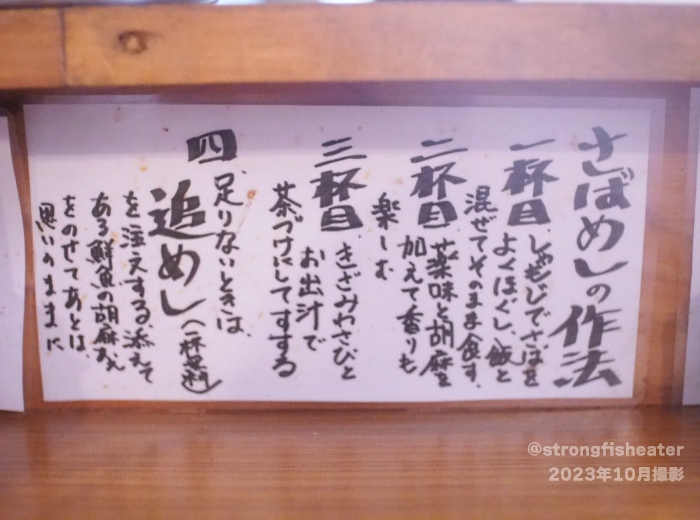 さばめしの作法
一杯目
しゃもじでさばを
よくほぐし、飯と
混ぜてそのまま食す。
二杯目
薬味と胡麻を
加えて香りも
楽しむ
三杯目
きざみわさびと
お出汁で
茶づけにしてすする
四
足りないときは、
追めし(一杯無料)
を注文する 添えて
ある鮮魚の胡麻あえ
をのせてあとは、
思いのままに
@strongfisheater
2023年10月撮影